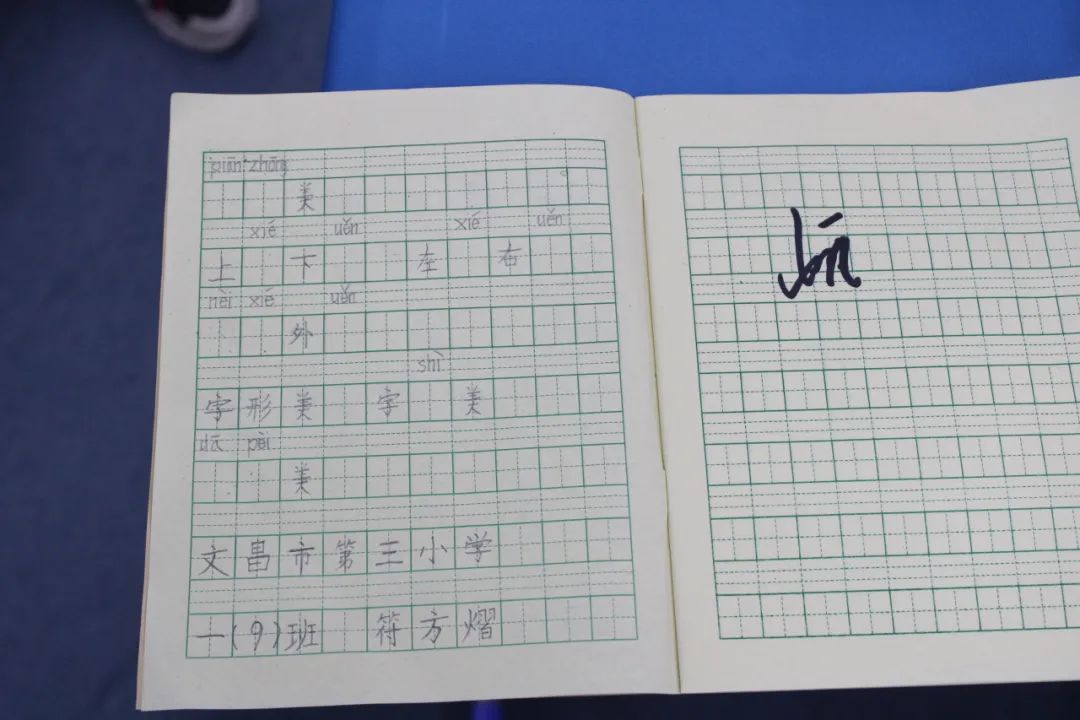 piān zhāng
美
xié uěn xié uěn
上 下 左 右
nèi xié uěn
外
shì
字形美 字 美
dā pèi
美
文昌市第三小学
一(9)班 符方熠